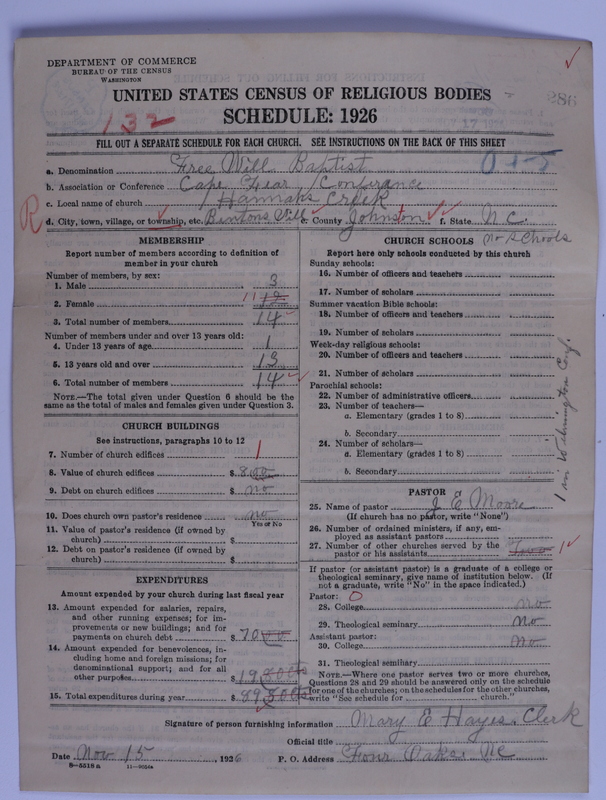 DEPARTMENT OF COMMERCE
BUREAU OF THE CENSUS
WASHINGTON
UNITED STATES CENSUS OF RELIGIOUS BODIES
286
132
SCHEDULE: 1926
FILL OUT A SEPARATE SCHEDULE FOR EACH CHURCH. SEE INSTRUCTIONS ON THE BACK OF THIS SHEET
a. Denomination Free Will Baptist
b. Association or Conference Cape Fear Conferance
c. Local name of church Hannahs Creek
R d. City, town, village, or township, etc. Bentons Vill e. County Johnston f. State N.C.
MEMBERSHIP
Report number of members according to definition of
member in your church
Number of members, by sex:
1. Male 3
2. Female 11 12
3. Total number of members 14
Number of members under and over 13 years old:
4. Under 13 years of age 1
5. 13 years old and over 13
6. Total number of members 14
NOTE.—The total given under Question 6 should be the
same as the total of males and females given under Question 3.
CHURCH BUILDINGS
See instructions, paragraphs 10 to 12
7. Number of church edifices 1
8. Value of church edifices $ 800
9. Debt on church edifices $ no
10. Does church own pastor's residence no
Yes or No
11. Value of pastor's residence (if owned by
church) $
12. Debt on pastor's residence (if owned by
church) $
EXPENDITURES
Amount expended by your church during last fiscal year
13. Amount expended for salaries, repairs,
and other running expenses; for im-
provements or new buildings; and for
payments on church debt $ 70 00
14. Amount expended for benevolences, in-
cluding home and foreign missions; for
denominational support; and for all
other purposes $ 19 80 cts
15. Total expenditures during year $ 89 80 cts
CHURCH SCHOOLS no Schools
Report here only schools conducted by this church
Sunday schools:
16. Number of officers and teachers
17. Number of scholars
Summer vacation Bible schools:
18. Number of officers and teachers
19. Number of scholars
Week-day religious schools:
20. Number of officers and teachers
21. Number of scholars
Parochial schools:
22. Number of administrative officers
23. Number of teachers—
a. Elementary (grades 1 to 8)
b. Secondary
24. Number of scholars—
a. Elementary (grades 1 to 8)
b. Secondary
1 in Wilmington Conf.
PASTOR
25. Name of pastor J E Moore
(If church has no pastor, write "None")
26. Number of ordained ministers, if any, em-
ployed as assistant pastors
27. Number of other churches served by the
pastor or his assistants 1
If pastor (or assistant pastor) is a graduate of a college or
theological seminary, give name of institution below. (If
not a graduate, write "No" in the space indicated.)
Pastor: 0
28. College no
29. Theological seminary No
Assistant pastor:
30. College No
31. Theological seminary
NOTE.—Where one pastor serves two or more churches,
Questions 28 and 29 should be answered only on the schedule
for one of the churches; on the schedules for the other churches,
write "See schedule for church."
Signature of person furnishing information Mary E Hayes Clerk
Official title
Date Nov 15, 1926 P. O. Address Four Oakes NC
8—5518 a